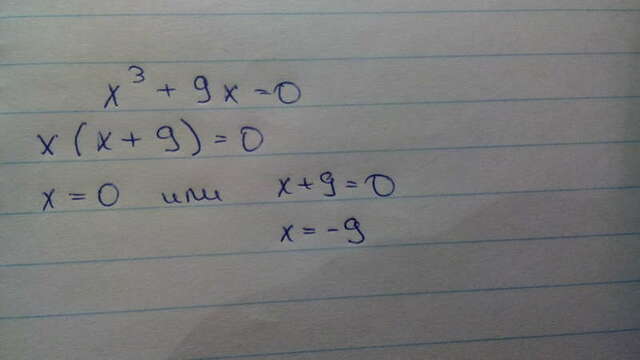 x³ + 9x = 0
x(x + 9) = 0
x = 0 или x + 9 = 0
x = -9